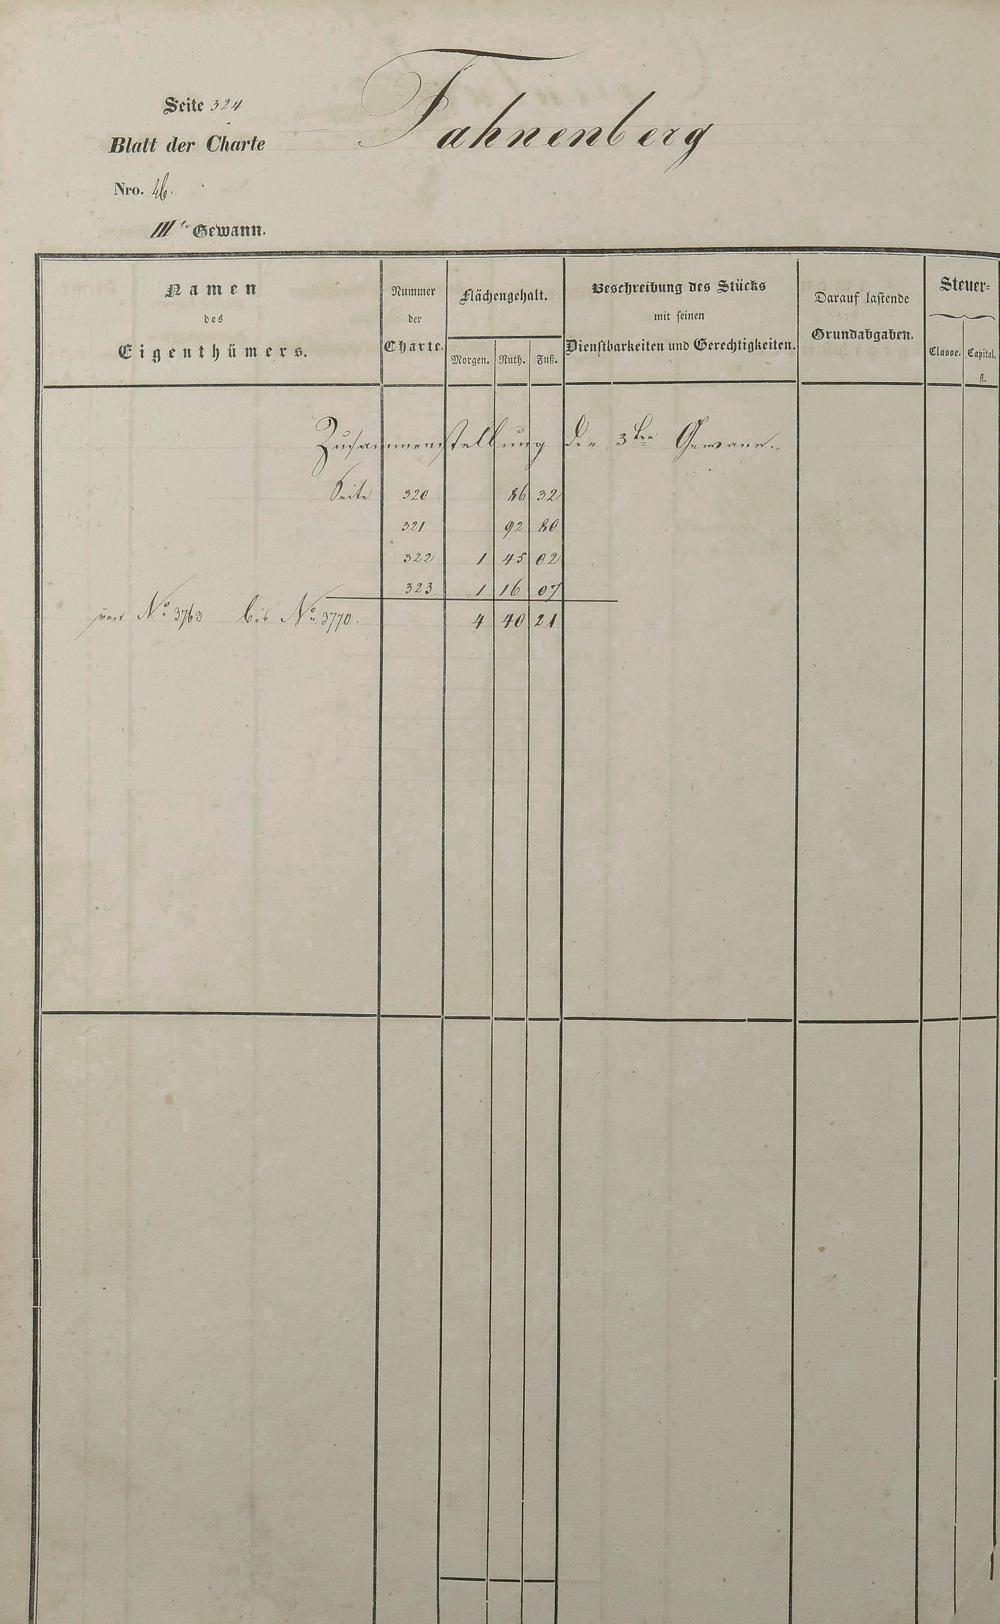 Fahnenberg
Seite 324
Blatt der Charte
Nro. 46.
III te Gewann.
Namen
des
Eigenthümers.
Nummer
der
Charte.
Flächengehalt.
Morgen. Ruth. Fuß.
Beschreibung des Stücks
mit seinen
Dienstbarkeiten und Gerechtigkeiten.
Darauf lastende
Grundabgaben.
Steuer=
Classe. Capital.
fl.
Zusammenstellung der 3ten Gewann.
Seite 320 86 32
321 92 80
322 1 45 02
323 1 16 07
von No. 3763 bis No. 3770. 4 40 21